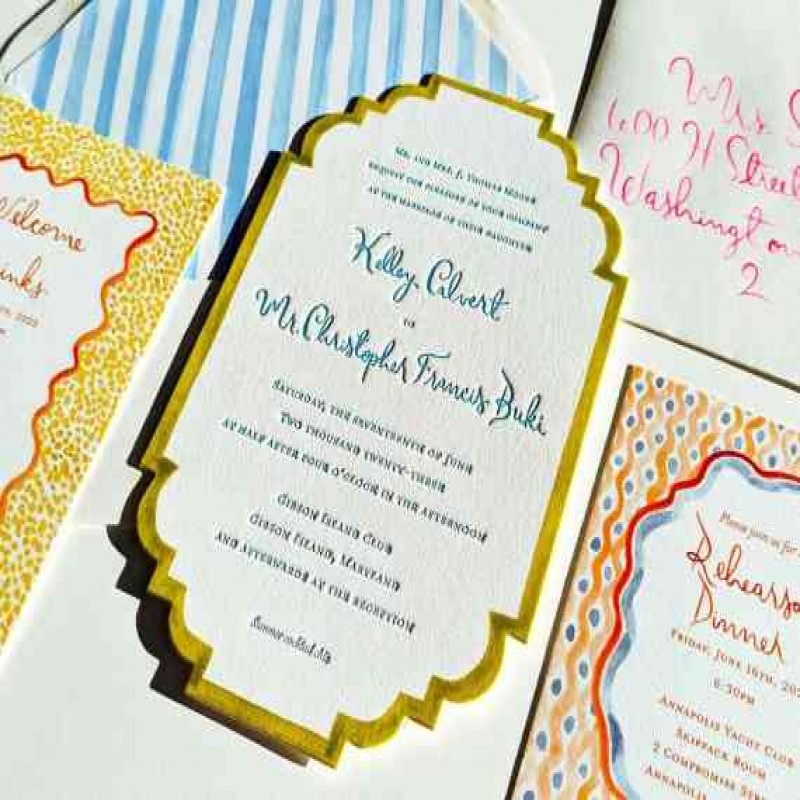 Mr. and Mrs. J. Thomas Moore
request the pleasure of your company
at the marriage of their daughter
Kelley Calvert
to
Mr. Christopher Francis Buki
Saturday, the seventeenth of June
two thousand twenty-three
at half after four o'clock in the afternoon
Gibson Island Club
Gibson Island, Maryland
and afterwards at the reception
Welcome
Mrs. S
600 H Street
Washington
2
Please join us for
Rehearsa
Dinner
Friday, June 16th, 202
6:30PM
Annapolis Yacht Club
Skipjack Room
2 Compromise Street
Annapolis